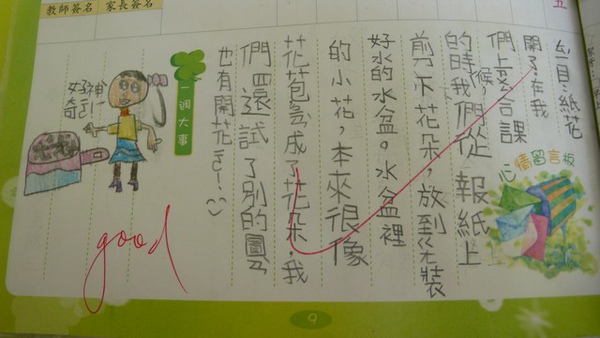 教師簽名 家長簽名
五
心情留言板
目:紙花
開了。在我
們上綜合課
的時候,我們從報紙上
剪下花朵,放到裝
好水的水盆。水盆裡
的小花,本來很像
花苞,成了花朵,我
們還試了別的圖
也有開花
一週大事
好神奇
good
9